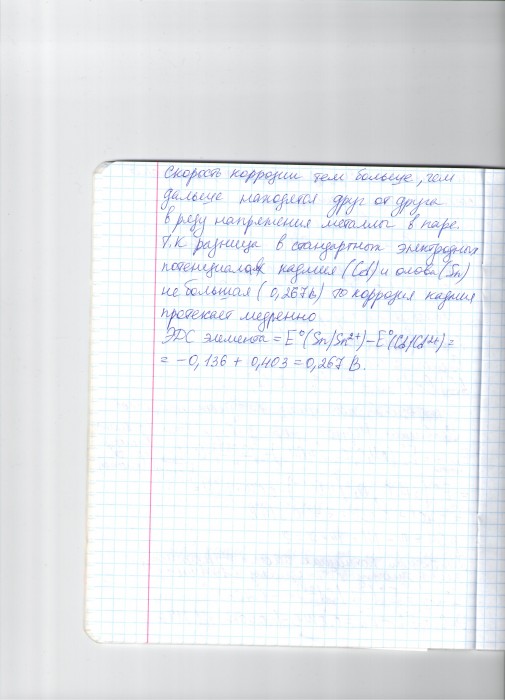 Скорость коррозии тем больше, чем
дальше находятся друг от друга
в ряду напряжения металлы в паре.
Т.К разница в стандартных электродных
потенциалах кадмия (Cd) и олова (Sn)
не большая (0,267В) то коррозия кадмия
протекает медленно
ЭДС элемента = E°(Sn/Sn²⁺)-E°(Cd/Cd²⁺)=
= -0,136 + 0,403 = 0,267 В.